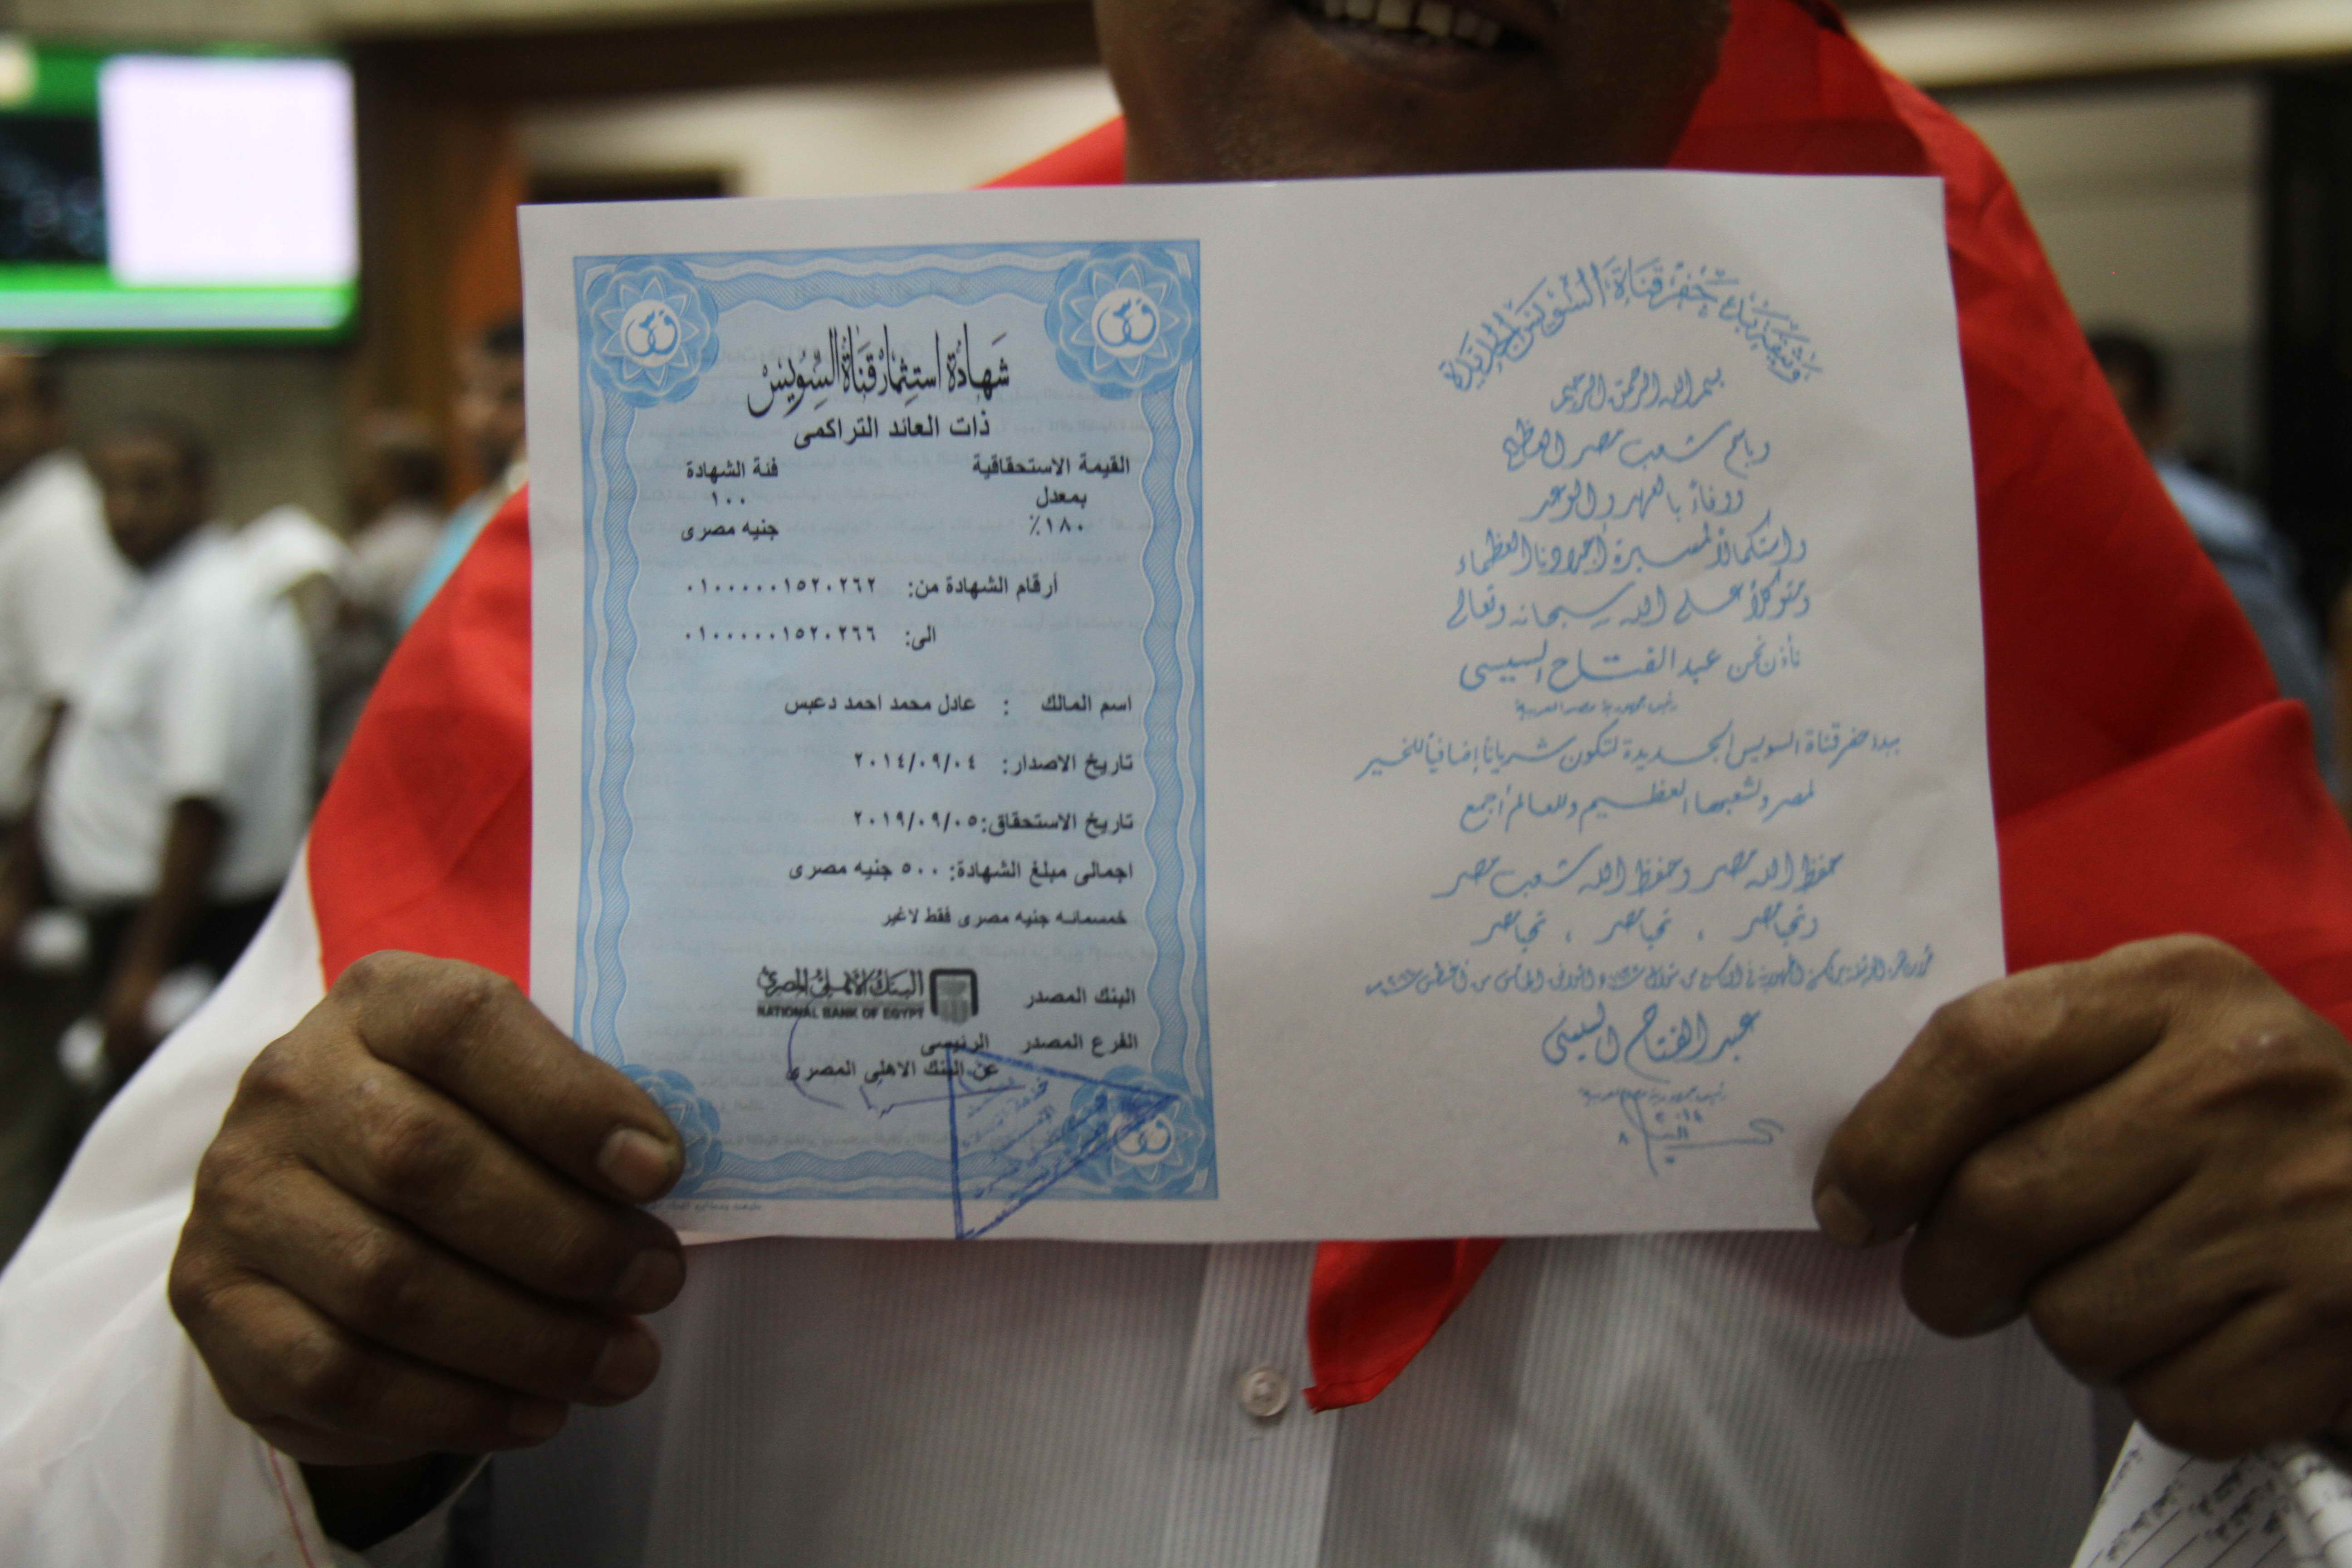 شهادة استثمار قناة السويس
ذات العائد التراكمى
القيمة الاستحقاقية
بمعدل
١٨٠٪
فئة الشهادة
١٠٠
جنيه مصرى
أرقام الشهادة من: ٠١٠٠٠٠٠٠١٥٢٠٢٦٢
الى: ٠١٠٠٠٠٠٠١٥٢٠٢٦٦
اسم المالك : عادل محمد احمد دعبس
تاريخ الاصدار: ٢٠١٤/٠٩/٠٤
تاريخ الاستحقاق: ٢٠١٩/٠٩/٠٥
اجمالى مبلغ الشهادة: ٥٠٠ جنيه مصرى
خمسمائه جنيه مصرى فقط لاغير
البنك المصدر البنك الأهلي المصري
NATIONAL BANK OF EGYPT
الفرع المصدر الرئيسى
عن البنك الاهلى المصرى
وثيقة بدء حفر قناة السويس الجديدة
بسم الله الرحمن الرحيم
وباسم شعب مصر العظيم
ووفاءً بالعهد والوعد
واستكمالاً لمسيرة أجدادنا العظماء
ومتوكلاً على الله سبحانه وتعالى
نأذن نحن عبد الفتاح السيسى
رئيس جمهورية مصر العربية
ببدء حفر قناة السويس الجديدة لتكون شرياناً إضافياً للخير
لمصر ولشعبها العظيم وللعالم أجمع
حفظ الله مصر وحفظ الله شعب مصر
وتحيا مصر ، تحيا مصر ، تحيا مصر
عبد الفتاح السيسى
رئيس جمهورية مصر العربية